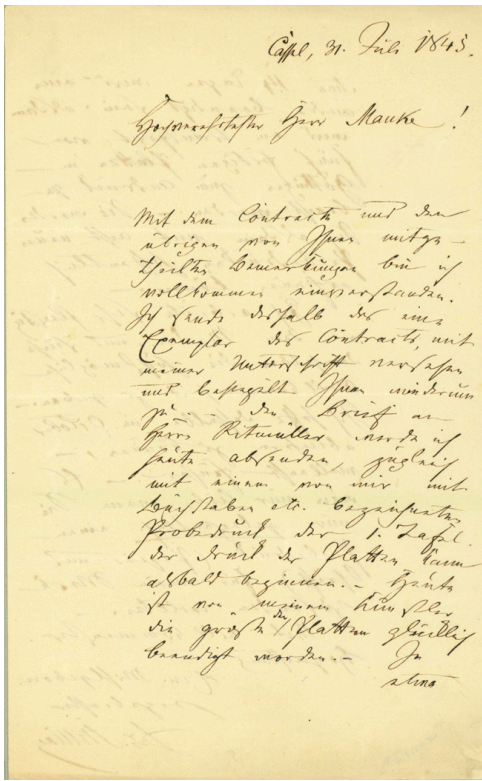 Cassel, 31. Juli 1845.
Hochverehrtester Herr Mauke!
Mit dem Contracte und den
übrigen von Ihnen mitge-
theilten Bemerkungen bin ich
vollkommen einverstanden.
Ich sende deshalb das eine
Exemplar des Contracts, mit
meiner Unterschrift versehen
und besiegelt Ihnen wiederum
zu. – Den Brief an
Herrn Ritmüller werde ich
heute absenden, zugleich
mit einem von mir mit
Buchstaben etc. bezeichneten
Probedruck der 1. Tafel.
Der Druck der Platten kann
alsbald beginnen. – Heute
ist von meinem Künstler
die größte der Platten glücklich
beendigt worden. – In
etwa